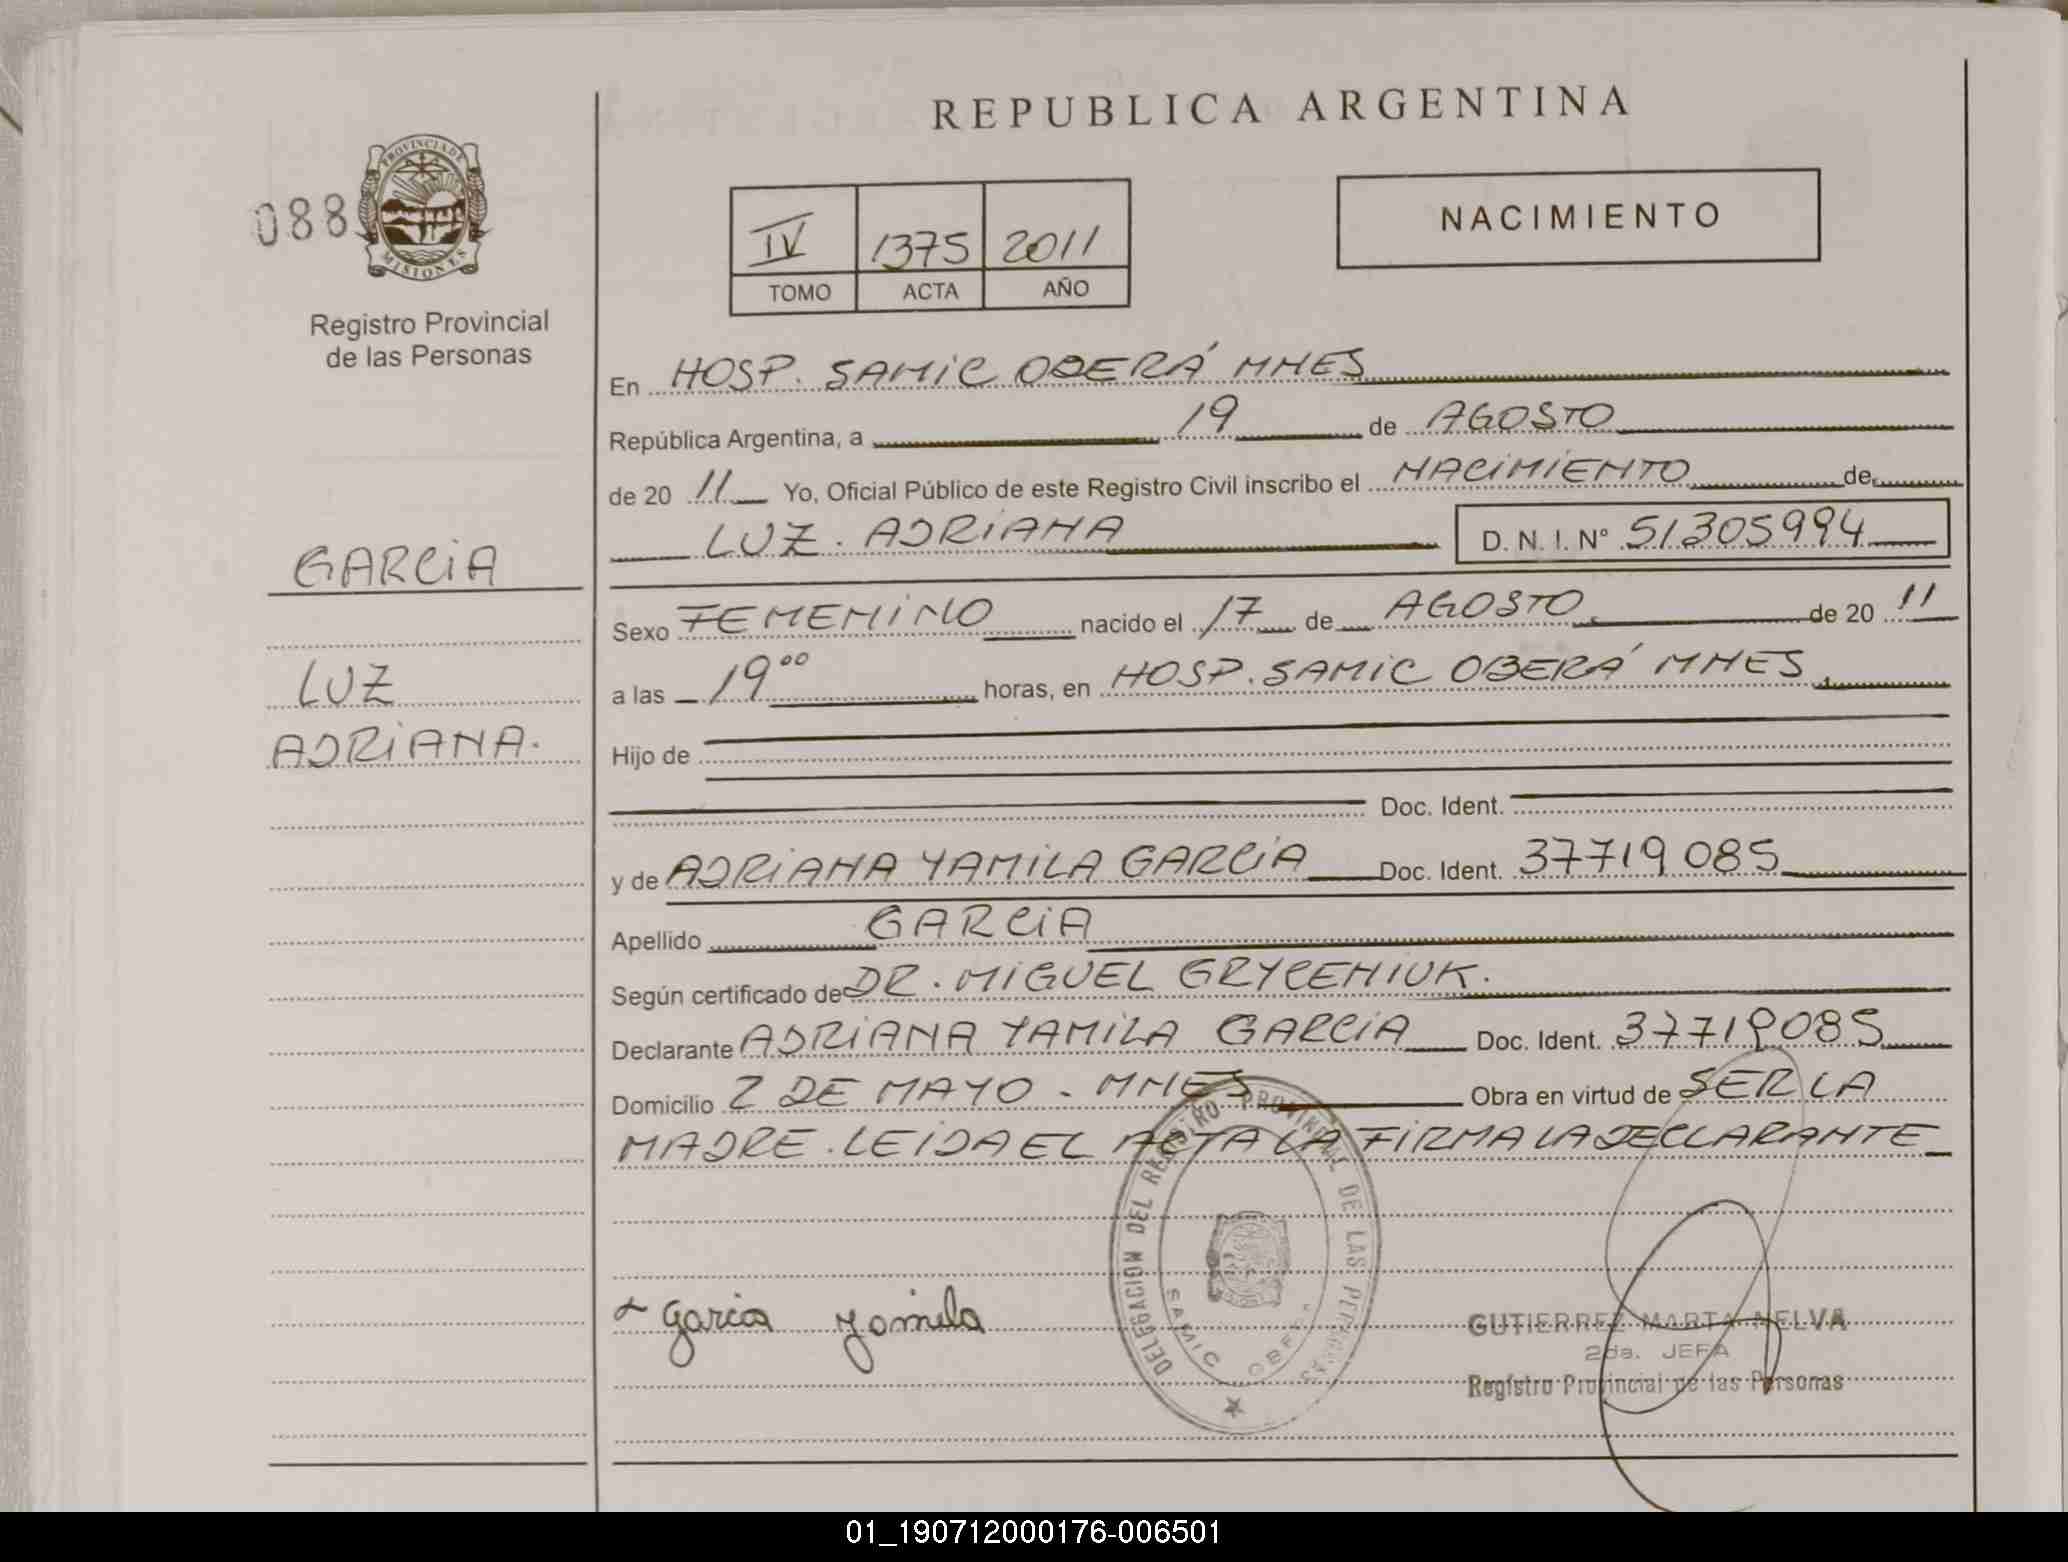 REPUBLICA ARGENTINA
088
PROVINCIA DE
MISIONES
Registro Provincial
de las Personas
IV 1375 2011
TOMO ACTA AÑO
NACIMIENTO
En HOSP. SAMIC OBERÁ MNES
República Argentina, a 19 de AGOSTO
de 20 11 Yo, Oficial Público de este Registro Civil inscribo el NACIMIENTO de
LUZ. ADRIANA D. N. I. N° 51305994
GARCIA
LUZ
ADRIANA.
Sexo FEMENINO nacido el 17 de AGOSTO de 20 11
a las 19°° horas, en HOSP. SAMIC OBERÁ MNES
Hijo de
Doc. Ident.
y de ADRIANA YAMILA GARCIA Doc. Ident. 37719085
Apellido GARCIA
Según certificado de DR. MIGUEL GRYCENIUK.
Declarante ADRIANA YAMILA GARCIA Doc. Ident. 37719085
Domicilio 2 DE MAYO - MNES Obra en virtud de SER LA
MADRE. LEIDA EL ACTA LA FIRMA LA DECLARANTE
DELEGACION DEL REGISTRO PROVINCIAL DE LAS PERSONAS
SAMIC OBERA
Garcia Yamila
GUTIERREZ MARTA NELVA
2da. JEFA
Registro Provincial de las Personas
01_190712000176-006501